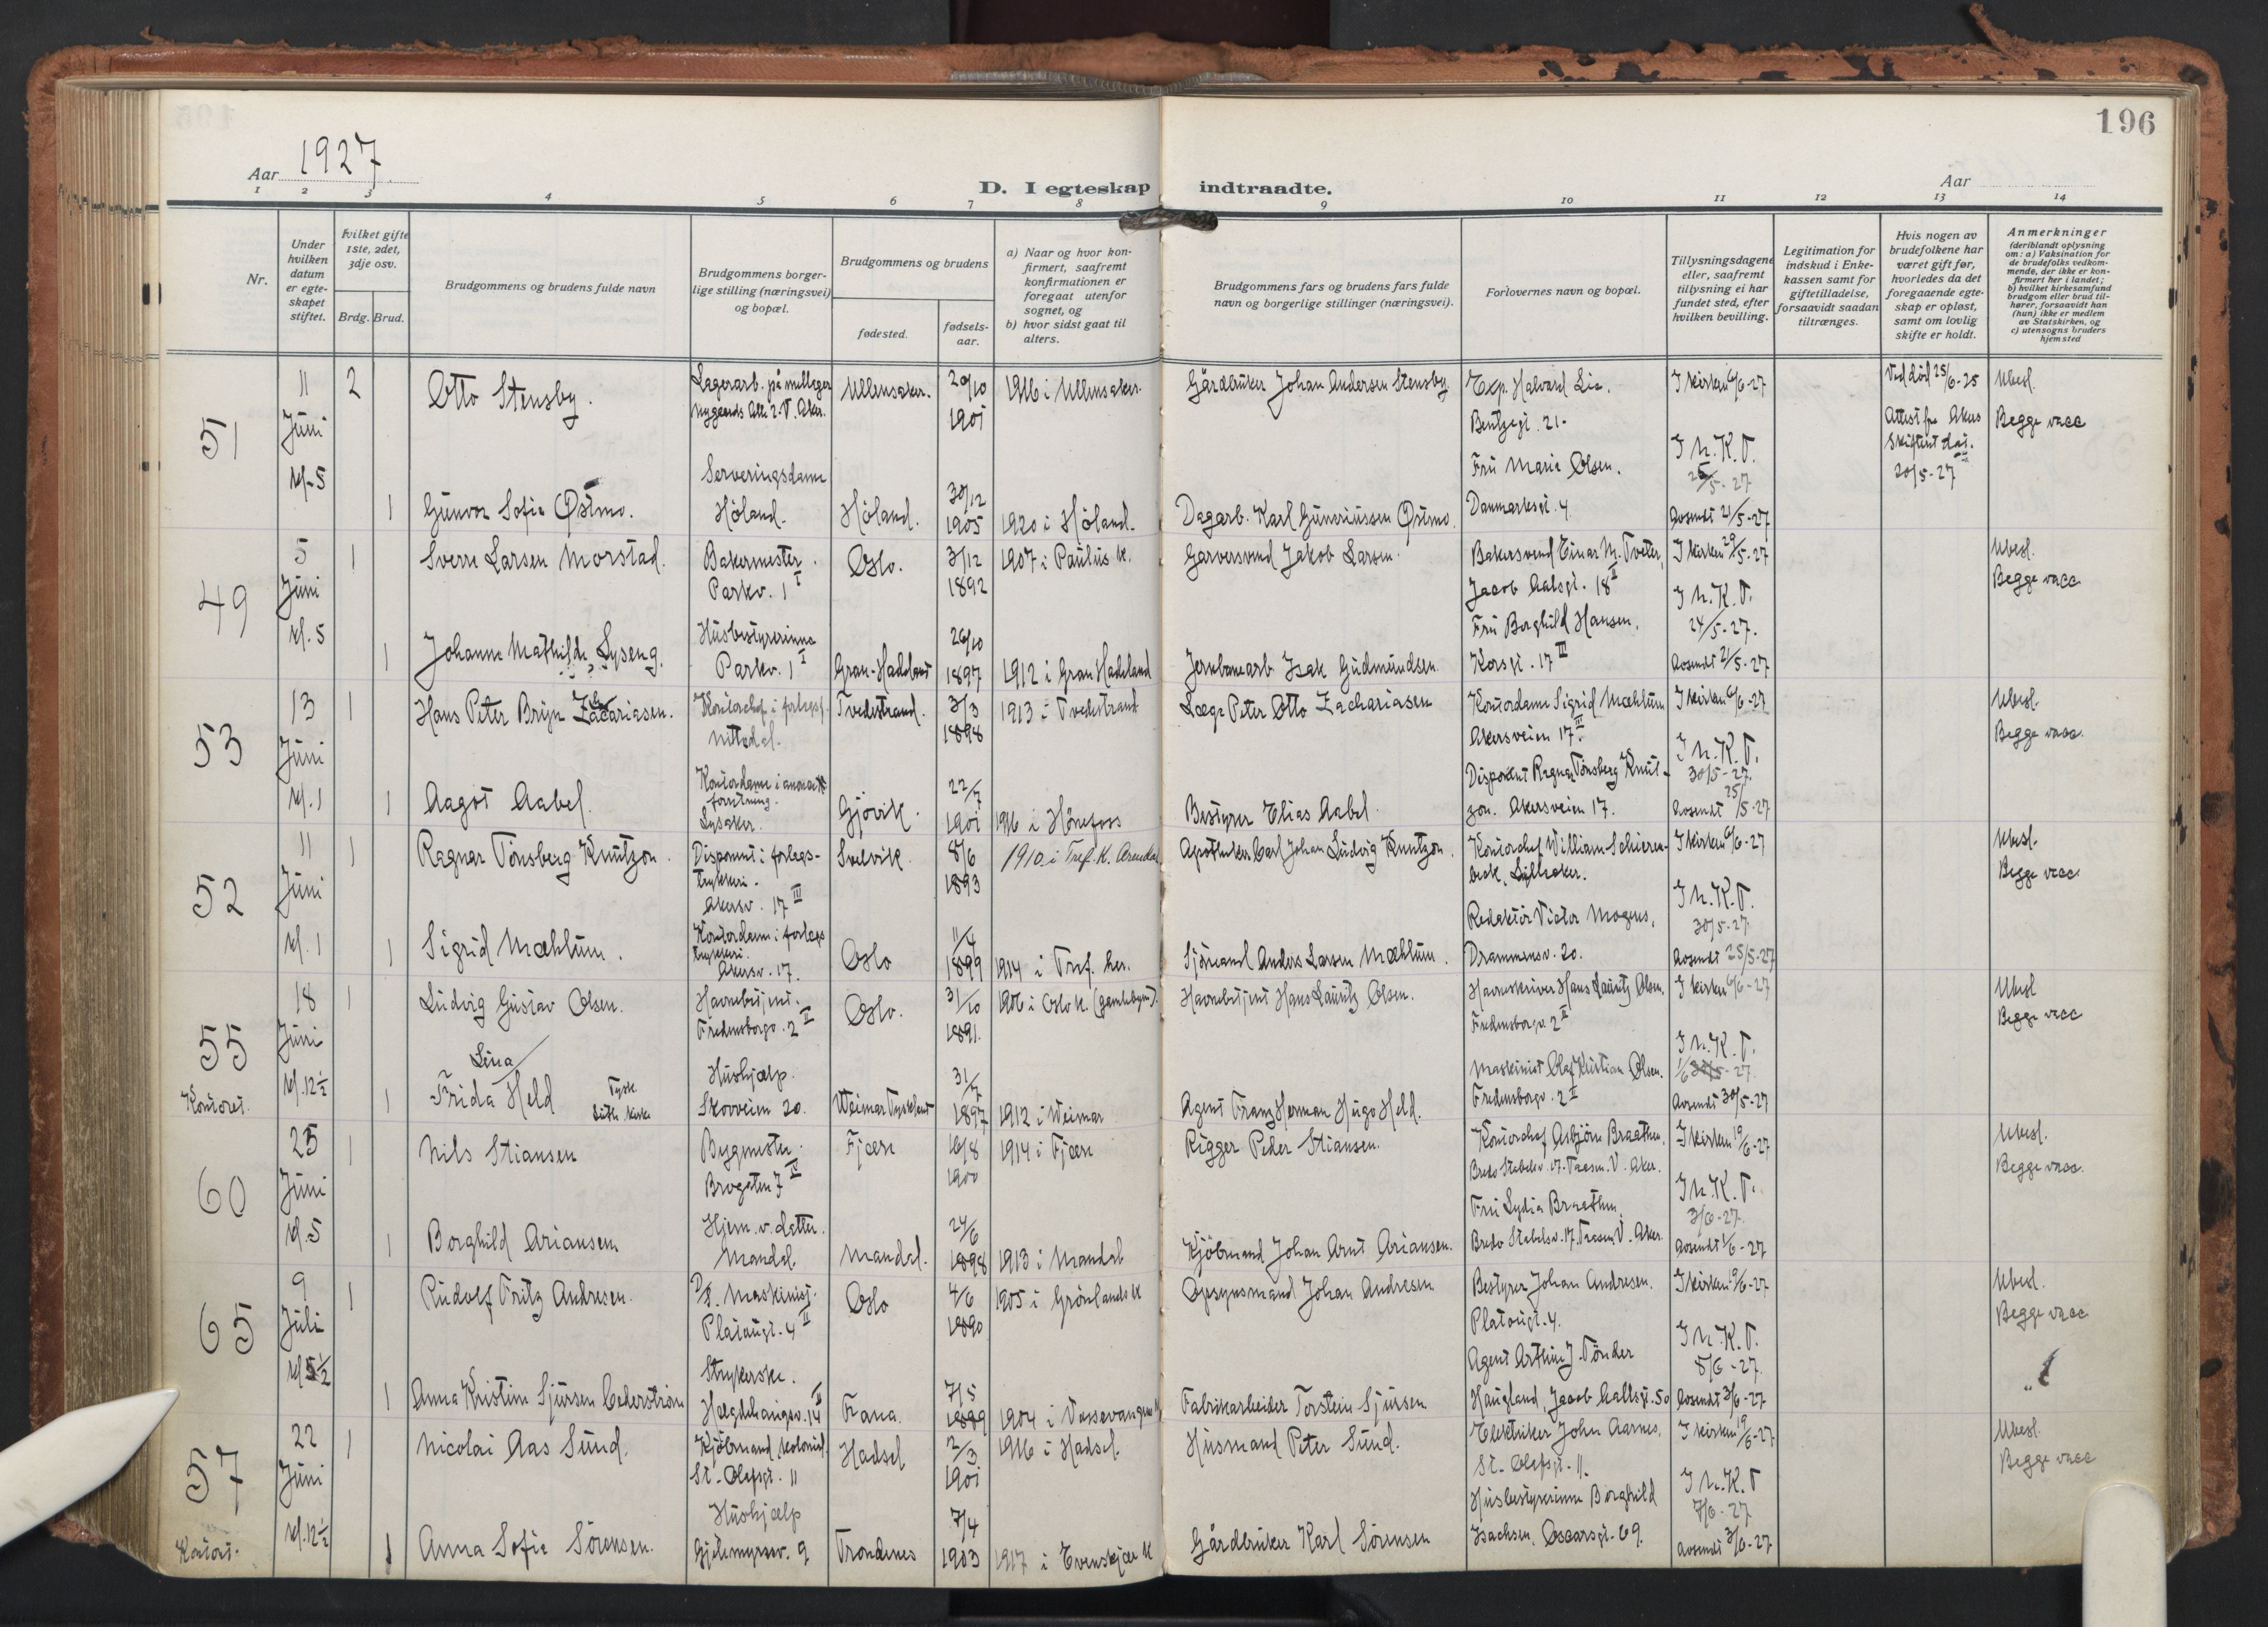 196
Aar 1927
D. I egteskap indtraadte.
Aar
1 2 3 4 5 6 7 8 9 10 11 12 13 14
Nr.
Under hvilken datum er egteskapet stiftet.
Hvilket gifte 1ste, 2det, 3dje osv.
Brdg. Brud.
Brudgommens og brudens fulde navn
Brudgommens borgerlige stilling (næringsvei) og bopæl.
Brudgommens og brudens
fødested.
fødsels-aar.
a) Naar og hvor konfirmert, saafremt konfirmationen er foregaat utenfor sognet, og
b) hvor sidst gaat til alters.
Brudgommens fars og brudens fars fulde navn og borgerlige stillinger (næringsvei).
Forlovernes navn og bopæl.
Tillysningsdagene eller, saafremt tillysning ei har fundet sted, efter hvilken bevilling.
Legitimation for indskud i Enkekassen samt for giftetilladelse, forsaavidt saadan tiltrænges.
Hvis nogen av brudefolkene har været gift før, hvorledes da det foregaaende egteskap er opløst, samt om lovlig skifte er holdt.
Anmerkninger (deriblandt oplysning om: a) Vaksination for de brudefolks vedkommende, der ikke er konfirmert her i landet; b) hvilket kirkesamfund brudgom eller brud tilhører, forsaavidt han (hun) ikke er medlem av Statskirken, og c) utensogns bruders hjemsted
51
11 Juni kl. 5
2 Otto Stensby.
Lagerarb.
Ullensaker. 20/10 1901
1916 i Ullensaker.
Gårdbruker Johan Andersen Stensby
Exp. Halvard Lie.
Bentzegt. 21.
Fru Marie Olsen.
Danmarksgt. 4
I kirken 6/6-27
I h. K. T.
25/5-27
Avsendt 21/5-27
Ved död 25/6-25
Attest fra Akers
Skifterett dat.
20/5-27
Ubesl.
Begge vacc
1 Gunvor Sofie Østmo.
Serveringsdame
Höland.
Höland. 30/12 1905
1920 i Höland.
Dagarb. Karl Guneriussen Østmo.
49
5 Juni kl. 5
1 Sverre Larsen Morstad.
Bakermester.
Parkv. 1 I
Oslo. 3/12 1892
1907 i Paulus k.
Garversvend Jakob Larsen.
Bakersvend Einar M. Tveter,
Jacob Aalsgt. 18 II
Fru Borghild Hansen,
Korsgt. 17 III
I kirken 29/5-27
I h. K. T.
24/5-27.
Avsendt 21/5-27
Ubesl.
Begge vacc
1 Johanne Mathilde Lyseng.
Husbestyrerinne
Parkv. 1 I
Gran-Hadeland 26/10 1897
1912 i Gran Hadeland
Jernbanearb. Isak Gudmundsen
53
13 Juni kl. 1
1 Hans Peter Bryn Zacariasen.
Kontorchef i forlagsf.
Nittedal.
Tvedestrand. 3/3 1898
1913 i Tvedestrand
Læge Peter Otto Zachariasen
Kontordame Sigrid Mæhlum
Akersveien 17 III
Disponent Ragnar Tönsberg Knut-
zon. Akersveien 17.
I kirken 6/6-27
I h. K. T.
30/5-27.
Avsendt 25/5-27
Ubesl.
Begge vacc.
1 Aagot Aabel.
Kontordame i
forretning.
Lysaker.
Gjövik. 22/7 1901
1916 i Hönefoss
Bestyrer Elias Aabel.
52
11 Juni kl. 1
1 Ragnar Tönsberg Knutzon
Disponent i forlags-
trykkeri.
Akersv. 17 III
Svelvik. 8/6 1893
1910 i Tref. K. Arendal
Apotheker Carl Johan Ludvig Knutzon.
Kontorchef William Schieren-
beck, Lilleaker.
Redaktör Victor Mogens,
Drammensv. 20.
I kirken 6/6-27
I h. K. T.
30/5-27
Avsendt 25/5-27
Ubesl.
Begge vacc.
1 Sigrid Mæhlum.
Kontordame i forlags
trykkeri.
Akersv. 17.
Oslo 11/4 1899
1914 i Tref. her.
Sjömand Anders Larsen Mæhlum.
55
Kontoret.
18 Juni kl. 12½
1 Ludvig Gustav Olsen.
Havnebetjent.
Fredensborgv. 2 II
Oslo. 31/10 1891.
1906 i Oslo k. (gamlebyen).
Havnebetjent Hans Lauritz Olsen.
Havneskriver Hans Lauritz Olsen,
Fredensborgv. 2 II
Maskinist Olaf Kristian Olsen.
Fredensborgv. 2 II
I kirken 6/6-27
I h. K. T.
1/6-27
Avsendt 30/5-27
Ubesl
Begge vacc
Lina
1 Frida Held
Tysk
Luth. kirke
Hushjælp.
Skovveien 20.
Weimar Tyskland 31/7 1897
1912 i Weimar
Agent Franz Herman Hugo Held.
60
25 Juni kl. 5
1 Nils Stiansen
Bygmester.
Brogaten 7 IV
Fjære 16/8 1900
1914 i Fjære
Rigger Peder Stiansen.
Kontorchef Asbjörn Braathen,
Bredo Stabelsv. 17. Taasen. V. Aker.
Fru Lydia Braathen,
Bredo Stabelsv. 17. Taasen V. Aker.
I kirken 19/6-27
I h. K. T.
3/6-27.
Avsendt 1/6-27
Ubesl.
Begge vacc.
1 Borghild Ariansen
Hjem. v. datter.
Mandal.
Mandal. 24/6 1898
1913 i Mandal
Kjöbmand Johan Arnt Ariansen.
65
9 Juli kl 5½
1 Rudolf Fritz Andresen.
Maskinisj.
Platougt. 4 II
Oslo 4/6 1890
1905 i Grönlands k
Opsynsmand Johan Andresen
Bestyrer Johan Andresen.
Platougt. 4.
Agent Arthur J. Tönder
Haugland, Jacob Aallsgt. 50
I kirken 19/6-27
I h. K. T.
8/6-27.
Avsendt 3/6-27
Ubesl.
Begge vacc
1 Anna Kristine Sjursen Cederström
Strykerske.
Hægdehaugsv. 14 II
Fana. 7/5 1889
1904 i Vossevangen k
Fabrikarbeider Torstein Sjursen
57
Kontoret.
22 Juni kl. 12½
1 Nicolai Aas Sund.
Kjöbmand, kolonial.
St. Olafsgt. 11
Hadsel 2/3 1901
1916 i Hadsel.
Husmand Peter Sund.
Elektriker John Aarnes,
St. Olafsgt. 11.
Husbestyrerinne Borghild
Isachsen, Oscarsgt. 69.
I kirken 19/6-27
I h. K. T
7/6-27
Avsendt 3/6-27
Ubesl.
Begge vacc
1 Anna Sofie Sörensen.
Hushjælp
Gjetemyrsv. 9
Trondenes 7/4 1903
1917 i Evenskjær k
Gårdbruker Karl Sörensen